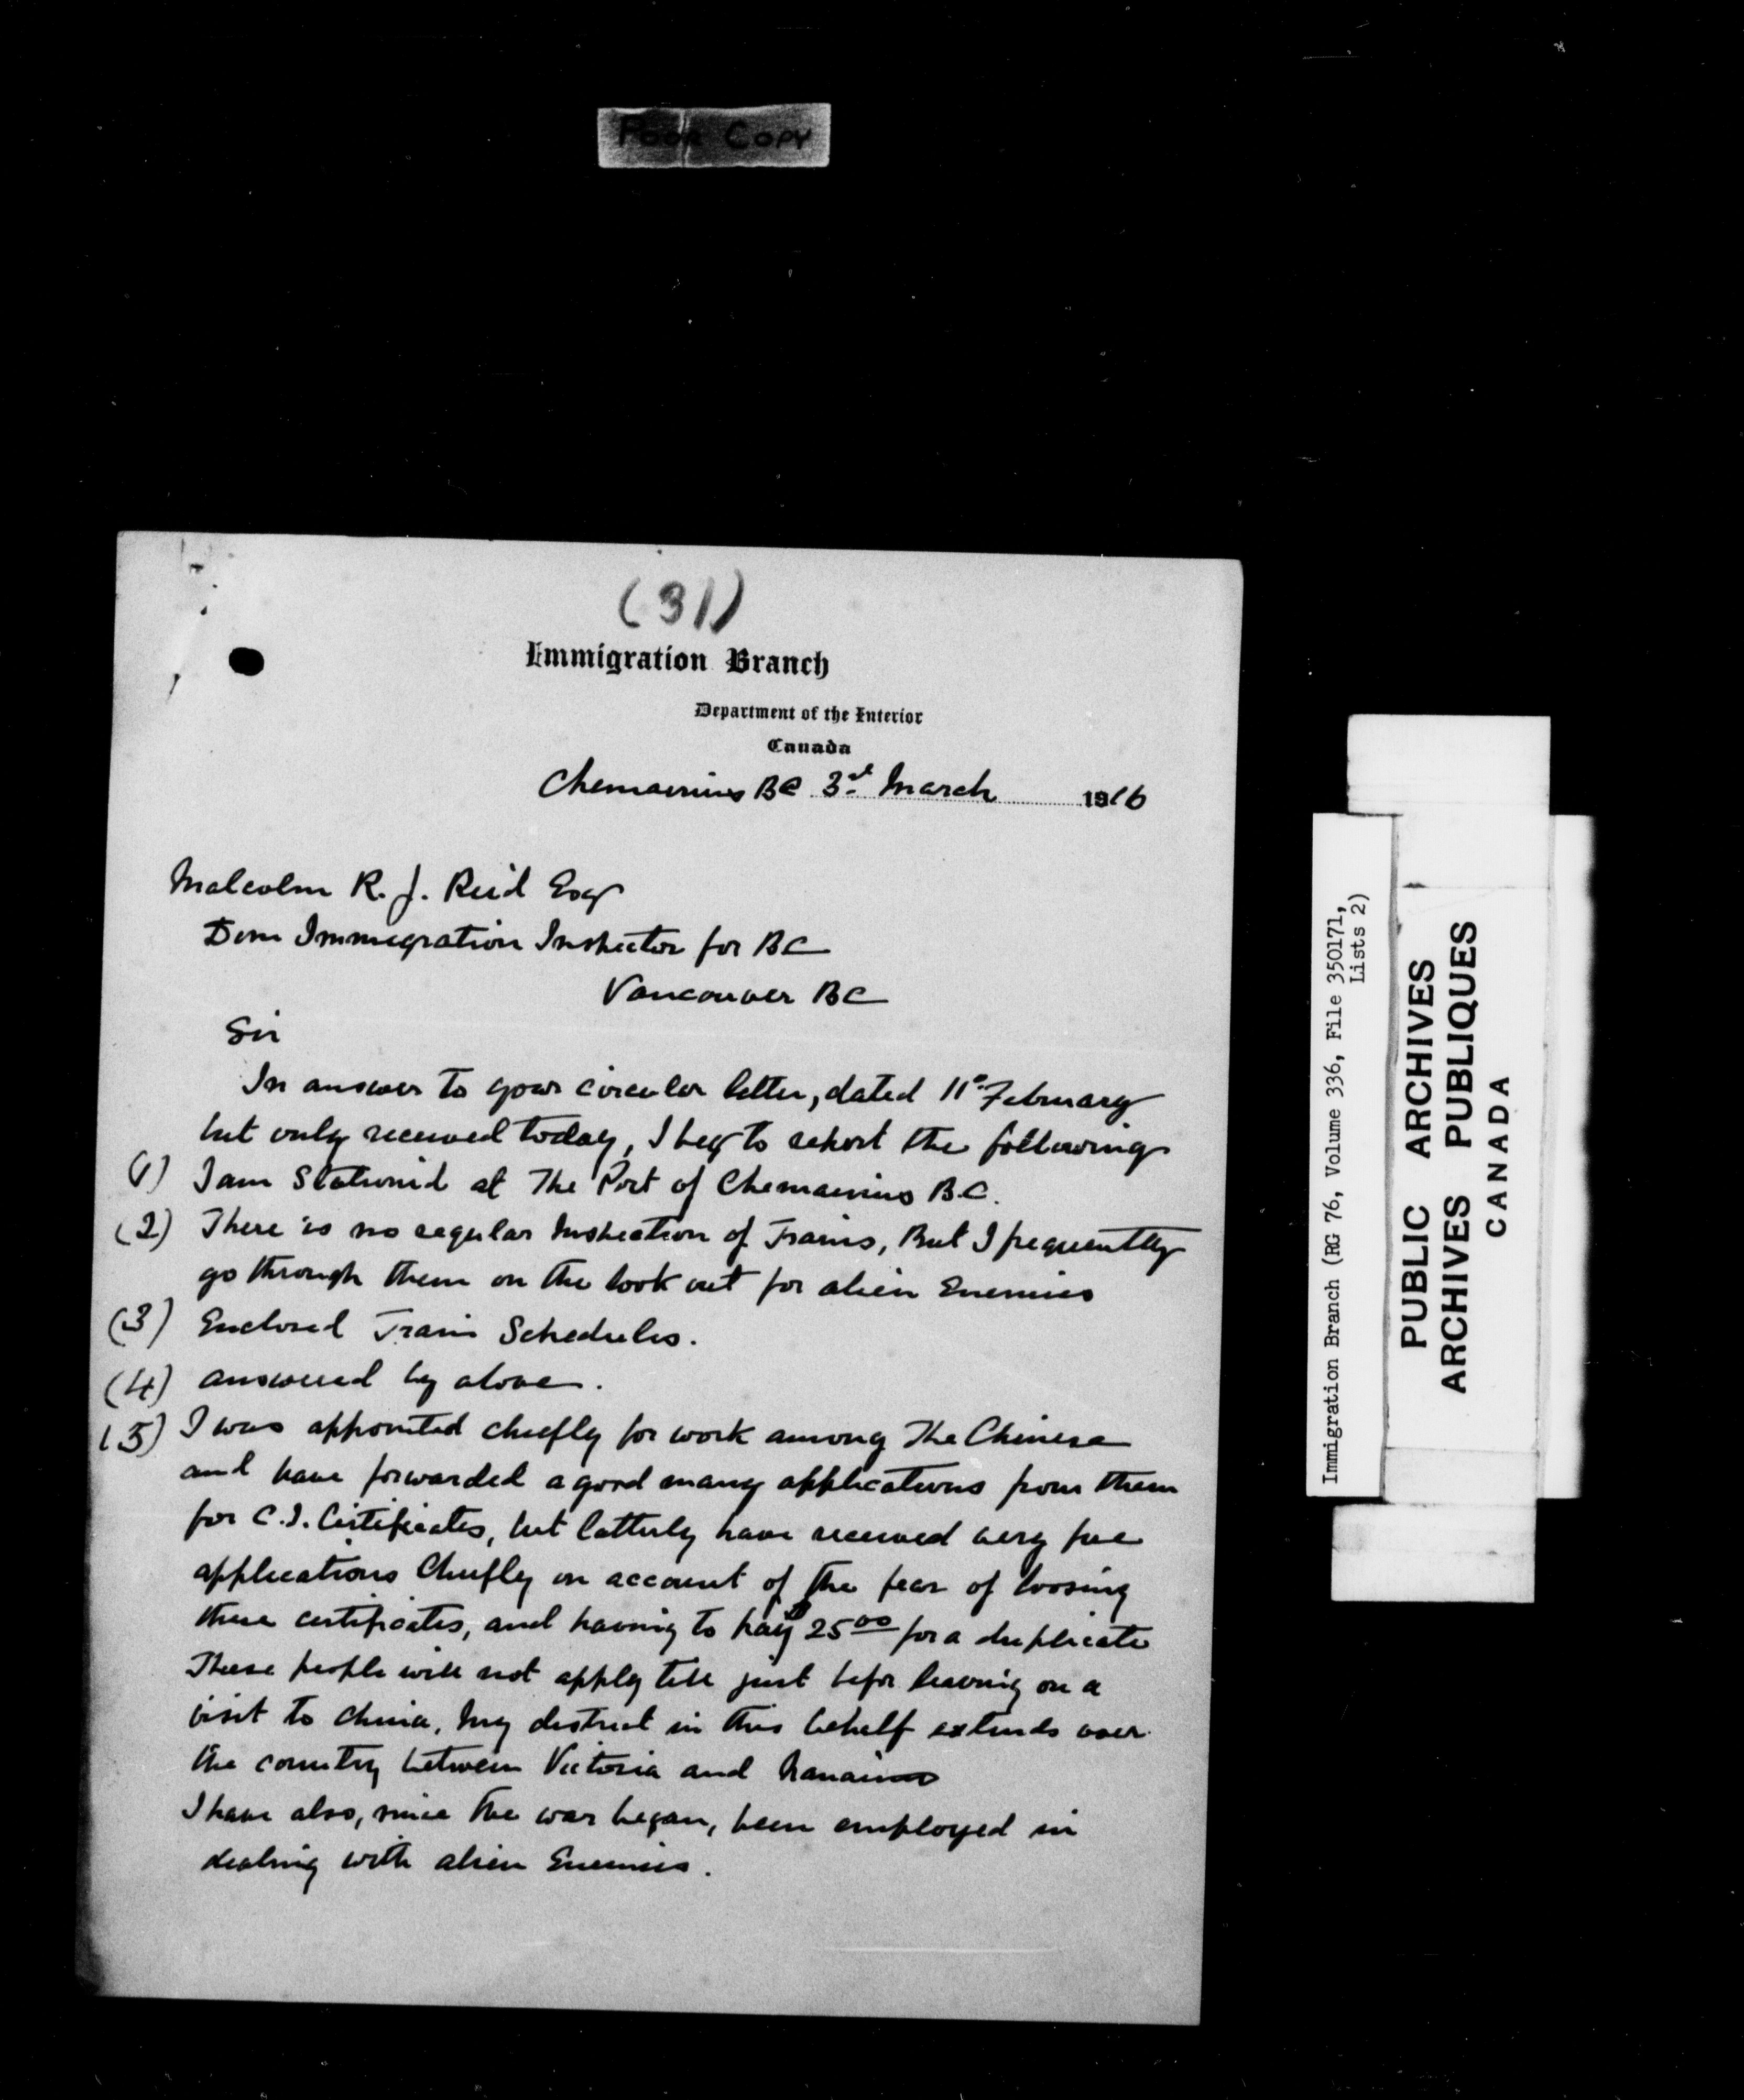 Poor Copy
(31)
Immigration Branch
Department of the Interior
Canada
Chemainus BC 3rd March 1916
Malcolm R. J. Reid Esqr
Dom Immigration Inspector for BC
Vancouver BC
Sir
In answer to your circular letter, dated 11° February
but only received today, I beg to report the following
(1) I am Stationed at The Port of Chemainus B.C.
(2) There is no regular Inspection of Trains, But I frequently
go through them on the look out for alien Enemies
(3) Enclosed Train Schedules.
(4) answered by above.
(5) I was appointed chiefly for work among The Chinese
and have forwarded a good many applications from them
for C.I. Certificates, but latterly have received very few
applications Chiefly on account of the fear of loosing
these certificates, and having to pay $25.00 for a duplicate
These people will not apply till just befor leaving on a
visit to China, My district in this behalf extends over
the country between Victoria and Nanaimo
I have also, since the war began, been employed in
dealing with alien Enemies.
Immigration Branch (RG 76, Volume 336, File 350171,
Lists 2)
PUBLIC ARCHIVES
ARCHIVES PUBLIQUES
CANADA